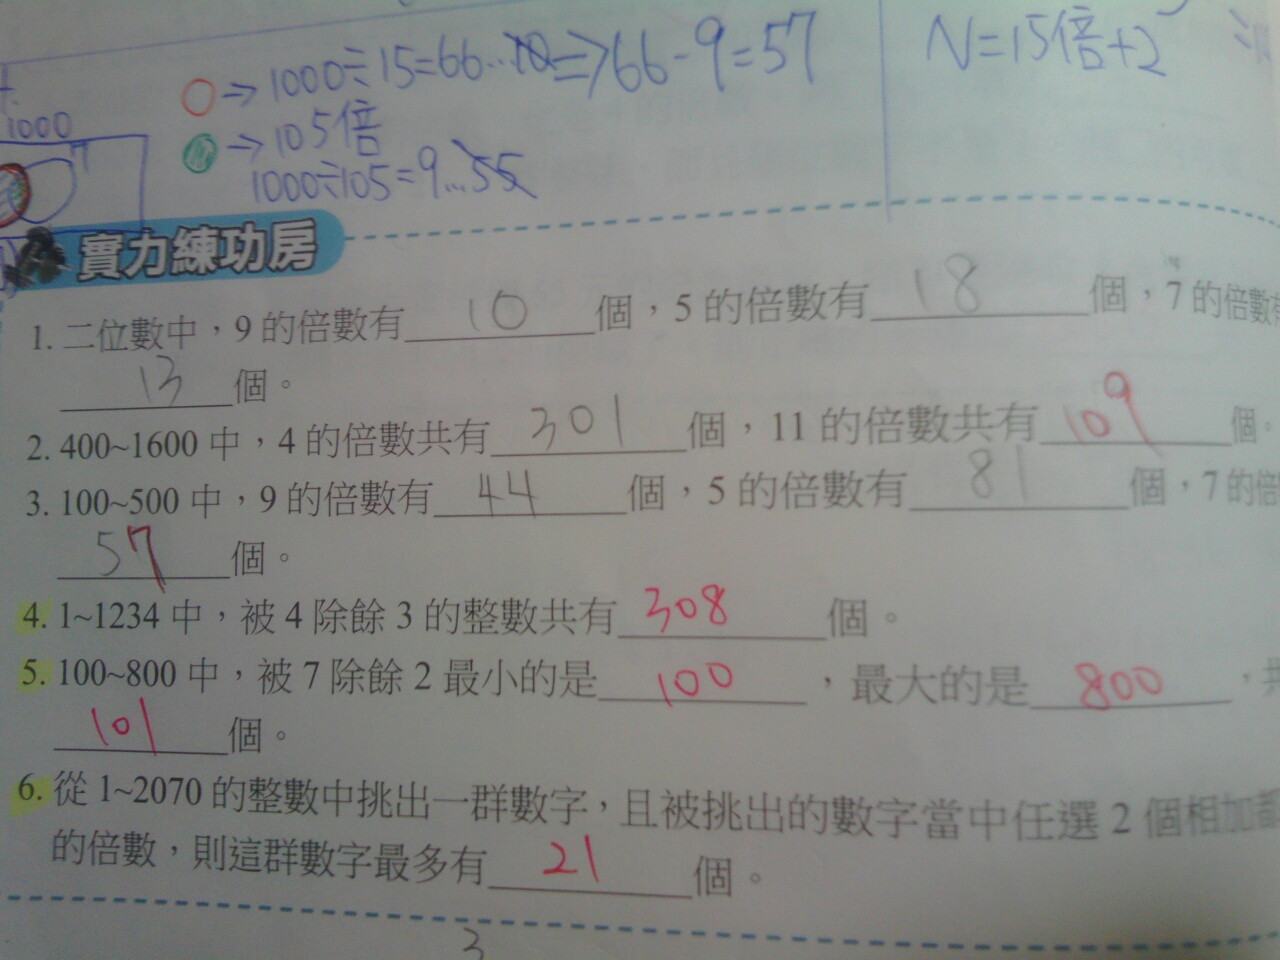 1000÷15=66…10⇒66-9=57
N=15倍+2
1000
→105倍
1000÷105=9…55
實力練功房
1. 二位數中，9 的倍數有 10 個，5 的倍數有 18 個，7 的倍數有
13 個。
2. 400~1600 中，4 的倍數共有 301 個，11 的倍數共有 109 個。
3. 100~500 中，9 的倍數有 44 個，5 的倍數有 81 個，7 的倍
57 個。
4. 1~1234 中，被 4 除餘 3 的整數共有 308 個。
5. 100~800 中，被 7 除餘 2 最小的是 100 ，最大的是 800 ，共
101 個。
6. 從 1~2070 的整數中挑出一群數字，且被挑出的數字當中任選 2 個相加都
的倍數，則這群數字最多有 21 個。
3